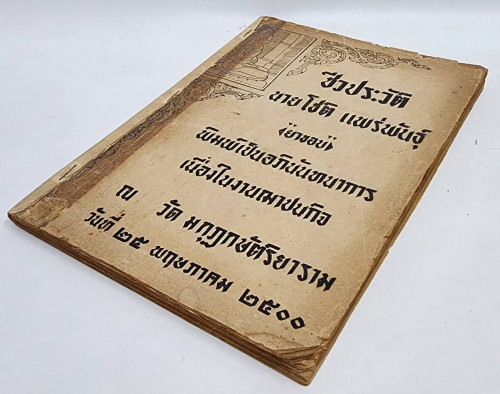 ชีวประวัติ
นายโชติ แพร่พันธุ์
"ยาขอบ"
พิมพ์เป็นอภินันทนาการ
เนื่องในงานฌาปนกิจ
ณ วัด มกุฏกษัตริยาราม
วันที่ ๒๕ พฤษภาคม ๒๕๐๐